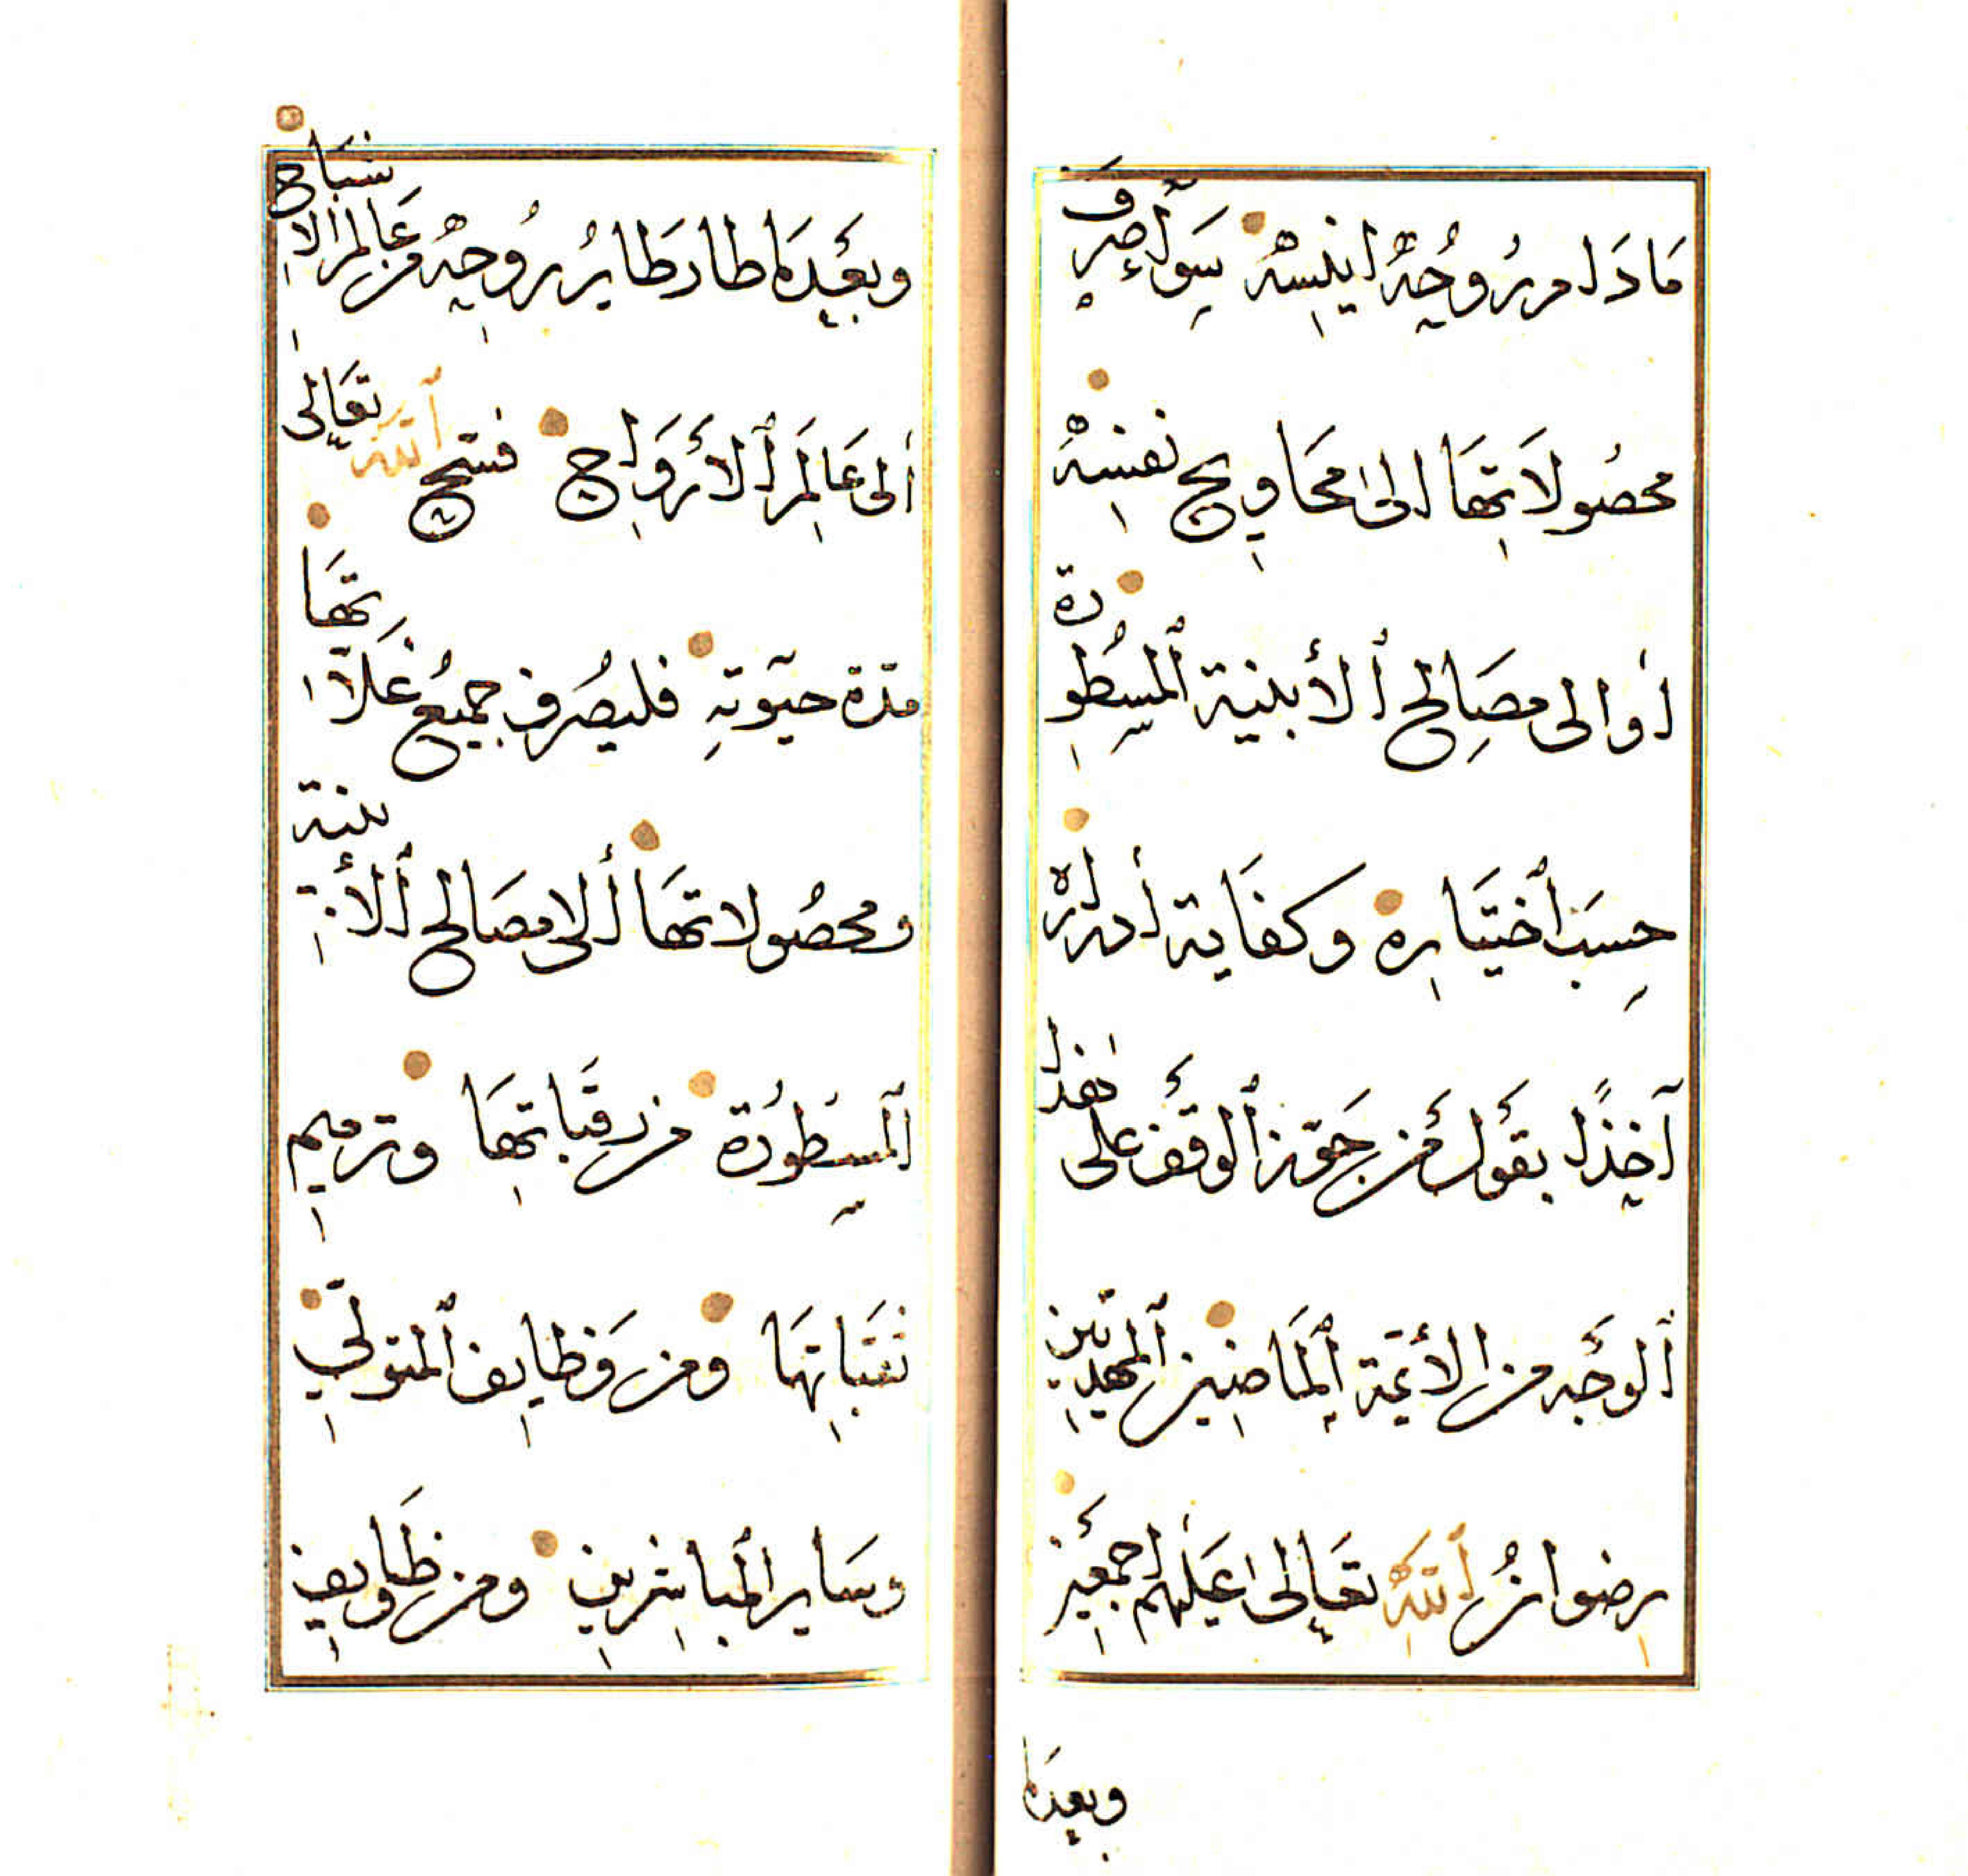 مَا دَام رُوحُهُ انيسهُ سَوآءٌ صرف
محصُولاَتهَا الى محَاويج نفسهْ
أو الى مصَالح ٱلأبنية ٱلمسطُورة
حسبَ ٱختيَاره وكفَاية أدراره
آخذًا بقَول مَن جَوّز ٱلوقف على هذا
ٱلوجَه من الأئمّة ٱلمَاضين ٱلمهديّين
رضوانُ ٱللّٰه تعَالى عَليهم اجمعَين
وبعدَما
وبعْدَمَا طار طَايرُ رُوحِهُ من عَالم الاشبَاح
ألى عَالَم ٱلأرْوَاح فسّح ٱللّٰه تعَالى
مدّة حيٰوته فليصُرف جميعُ غَلاّتهَا
ومحصُولاتهَا ألى مصَالح ٱلأبنية
ٱلمسطُورة من رقبَاتهَا وترميم
نقبَاتهَا ومن وَظايف ٱلمتولّي
وسَاير ٱلمباشرين ومن وظَايف